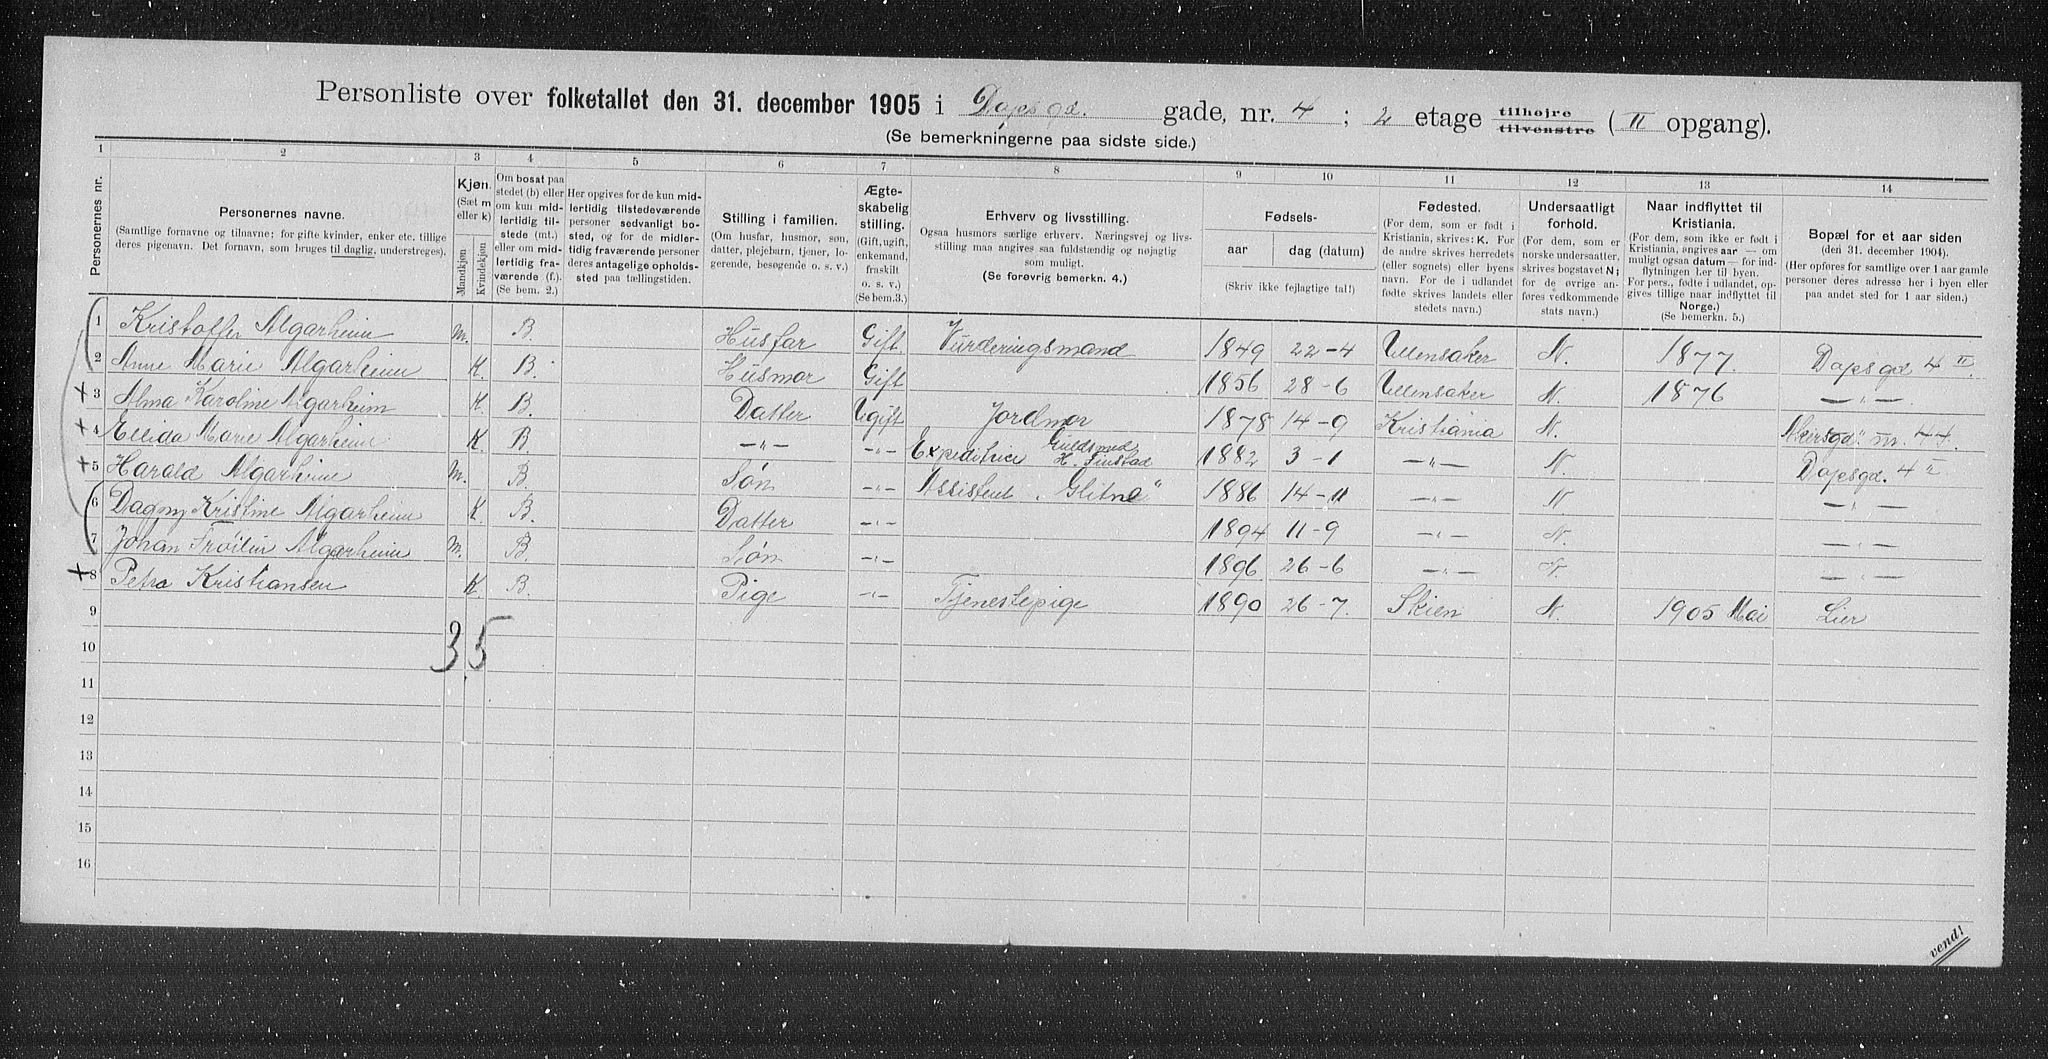 Personliste over folketallet den 31. december 1905 i Dopsgd. gade, nr. 4 ; 2 etage tilhøjre tilvenstre ( II opgang).
(Se bemerkningerne paa sidste side.)
1 2 3 4 5 6 7 8 9 10 11 12 13 14
Personernes nr.
Personernes navne.
(Samtlige fornavne og tilnavne; for gifte kvinder, enker etc. tillige deres pigenavn. Det fornavn, som bruges til daglig, understreges).
Kjøn. (Sæt m eller k)
Mandkjøn. Kvindekjøn.
Om bosat paa stedet (b) eller om kun midlertidig tilstede (mt.) eller om midlertidig fraværende (f.). (Se bem. 2.)
Her opgives for de kun midlertidig tilstedeværende personer sedvanligt bosted, og for de midlertidig fraværende personer deres antagelige opholdssted paa tællingstiden.
Stilling i familien.
(Om husfar, husmor, søn, datter, plejebarn, tjener, logerende, besøgende o. s. v.)
Ægteskabelig stilling.
(Gift, ugift, enkemand, fraskilt o. s. v.) (Se bem.3.)
Erhverv og livsstilling.
Ogsaa husmors særlige erhverv. Næringsvej og livsstilling maa angives saa fuldstændig og nøjagtig som muligt.
(Se forøvrig bemerkn. 4.)
Fødsels-
aar dag (datum)
(Skriv ikke fejlagtige tal!)
Fødested.
(For dem, som er født i Kristiania, skrives: K. For de andre skrives herredets (eller sognets) eller byens navn. For de i udlandet fødte skrives landets eller stedets navn.)
Undersaatligt forhold.
(For dem, som er norske undersaatter, skrives bogstavet N; for de øvrige anføres vedkommende stats navn.)
Naar indflyttet til Kristiania.
(For dem, som ikke er født i Kristiania, angives aar — om muligt ogsaa datum — for indflytningen her til byen. For pers., fødte i udlandet, opgives tillige naar indflyttet til Norge.)
(Se bemerkn. 5.)
Bopæl for et aar siden
(den 31. december 1904).
(Her opføres for samtlige over 1 aar gamle personer deres adresse her i byen eller paa andet sted for 1 aar siden.)
1 Kristoffer Algarheim m. B. Husfar Gift. Vurderingsmand 1849 22-4 Ullensaker N. 1877. Dopsgd 4 II.
2 Anne Marie Algarheim K. B. Husmor Gift 1856 28-6 Ullensaker N. 1876 — „ —
+ 3 Alma Karoline Algarheim K. B. Datter Ugift Jordmor 1878 14-9 Kristiania N. Akersgd. nr. 44.
+ 4 Ellida Marie Algarheim K. B — „ — - „ - Expeditrice Guldsmed H. Finstad 1882 3-1 — „ — N. Dopsgd. 4 II
+ 5 Harald Algarheim m. B. Søn - „ - Assistent „Glitne" 1886 14-11 — „ — N — „ —
6 Dagny Kristine Algarheim K. B. Datter - „ - 1894 11-9 — „ — N. — „ —
7 Johan Frøilin Algarheim m. B. Søn - „ - 1896 26-6 — „ — N. — „ —
+ 8 Petra Kristiansen K. B. Pige - „ - Tjenestepige 1890 26-7. Skien N. 1905 Mai Lier
9
10 3 5
11
12
13
14
15
16
vend!